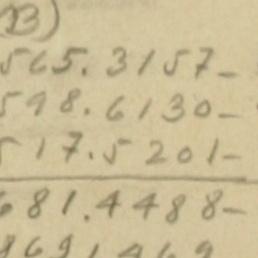 13)
565.3157-
598.6130-
517.5201-
681.4488-